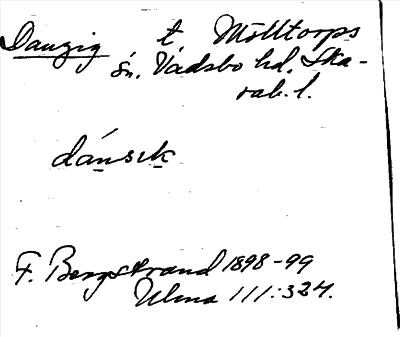 Danzig t. Mölltorps
sn. Vadsbo hd. Ska-
rab. l.
dánsık
F. Bergstrand 1898-99
Ulma 111:324.